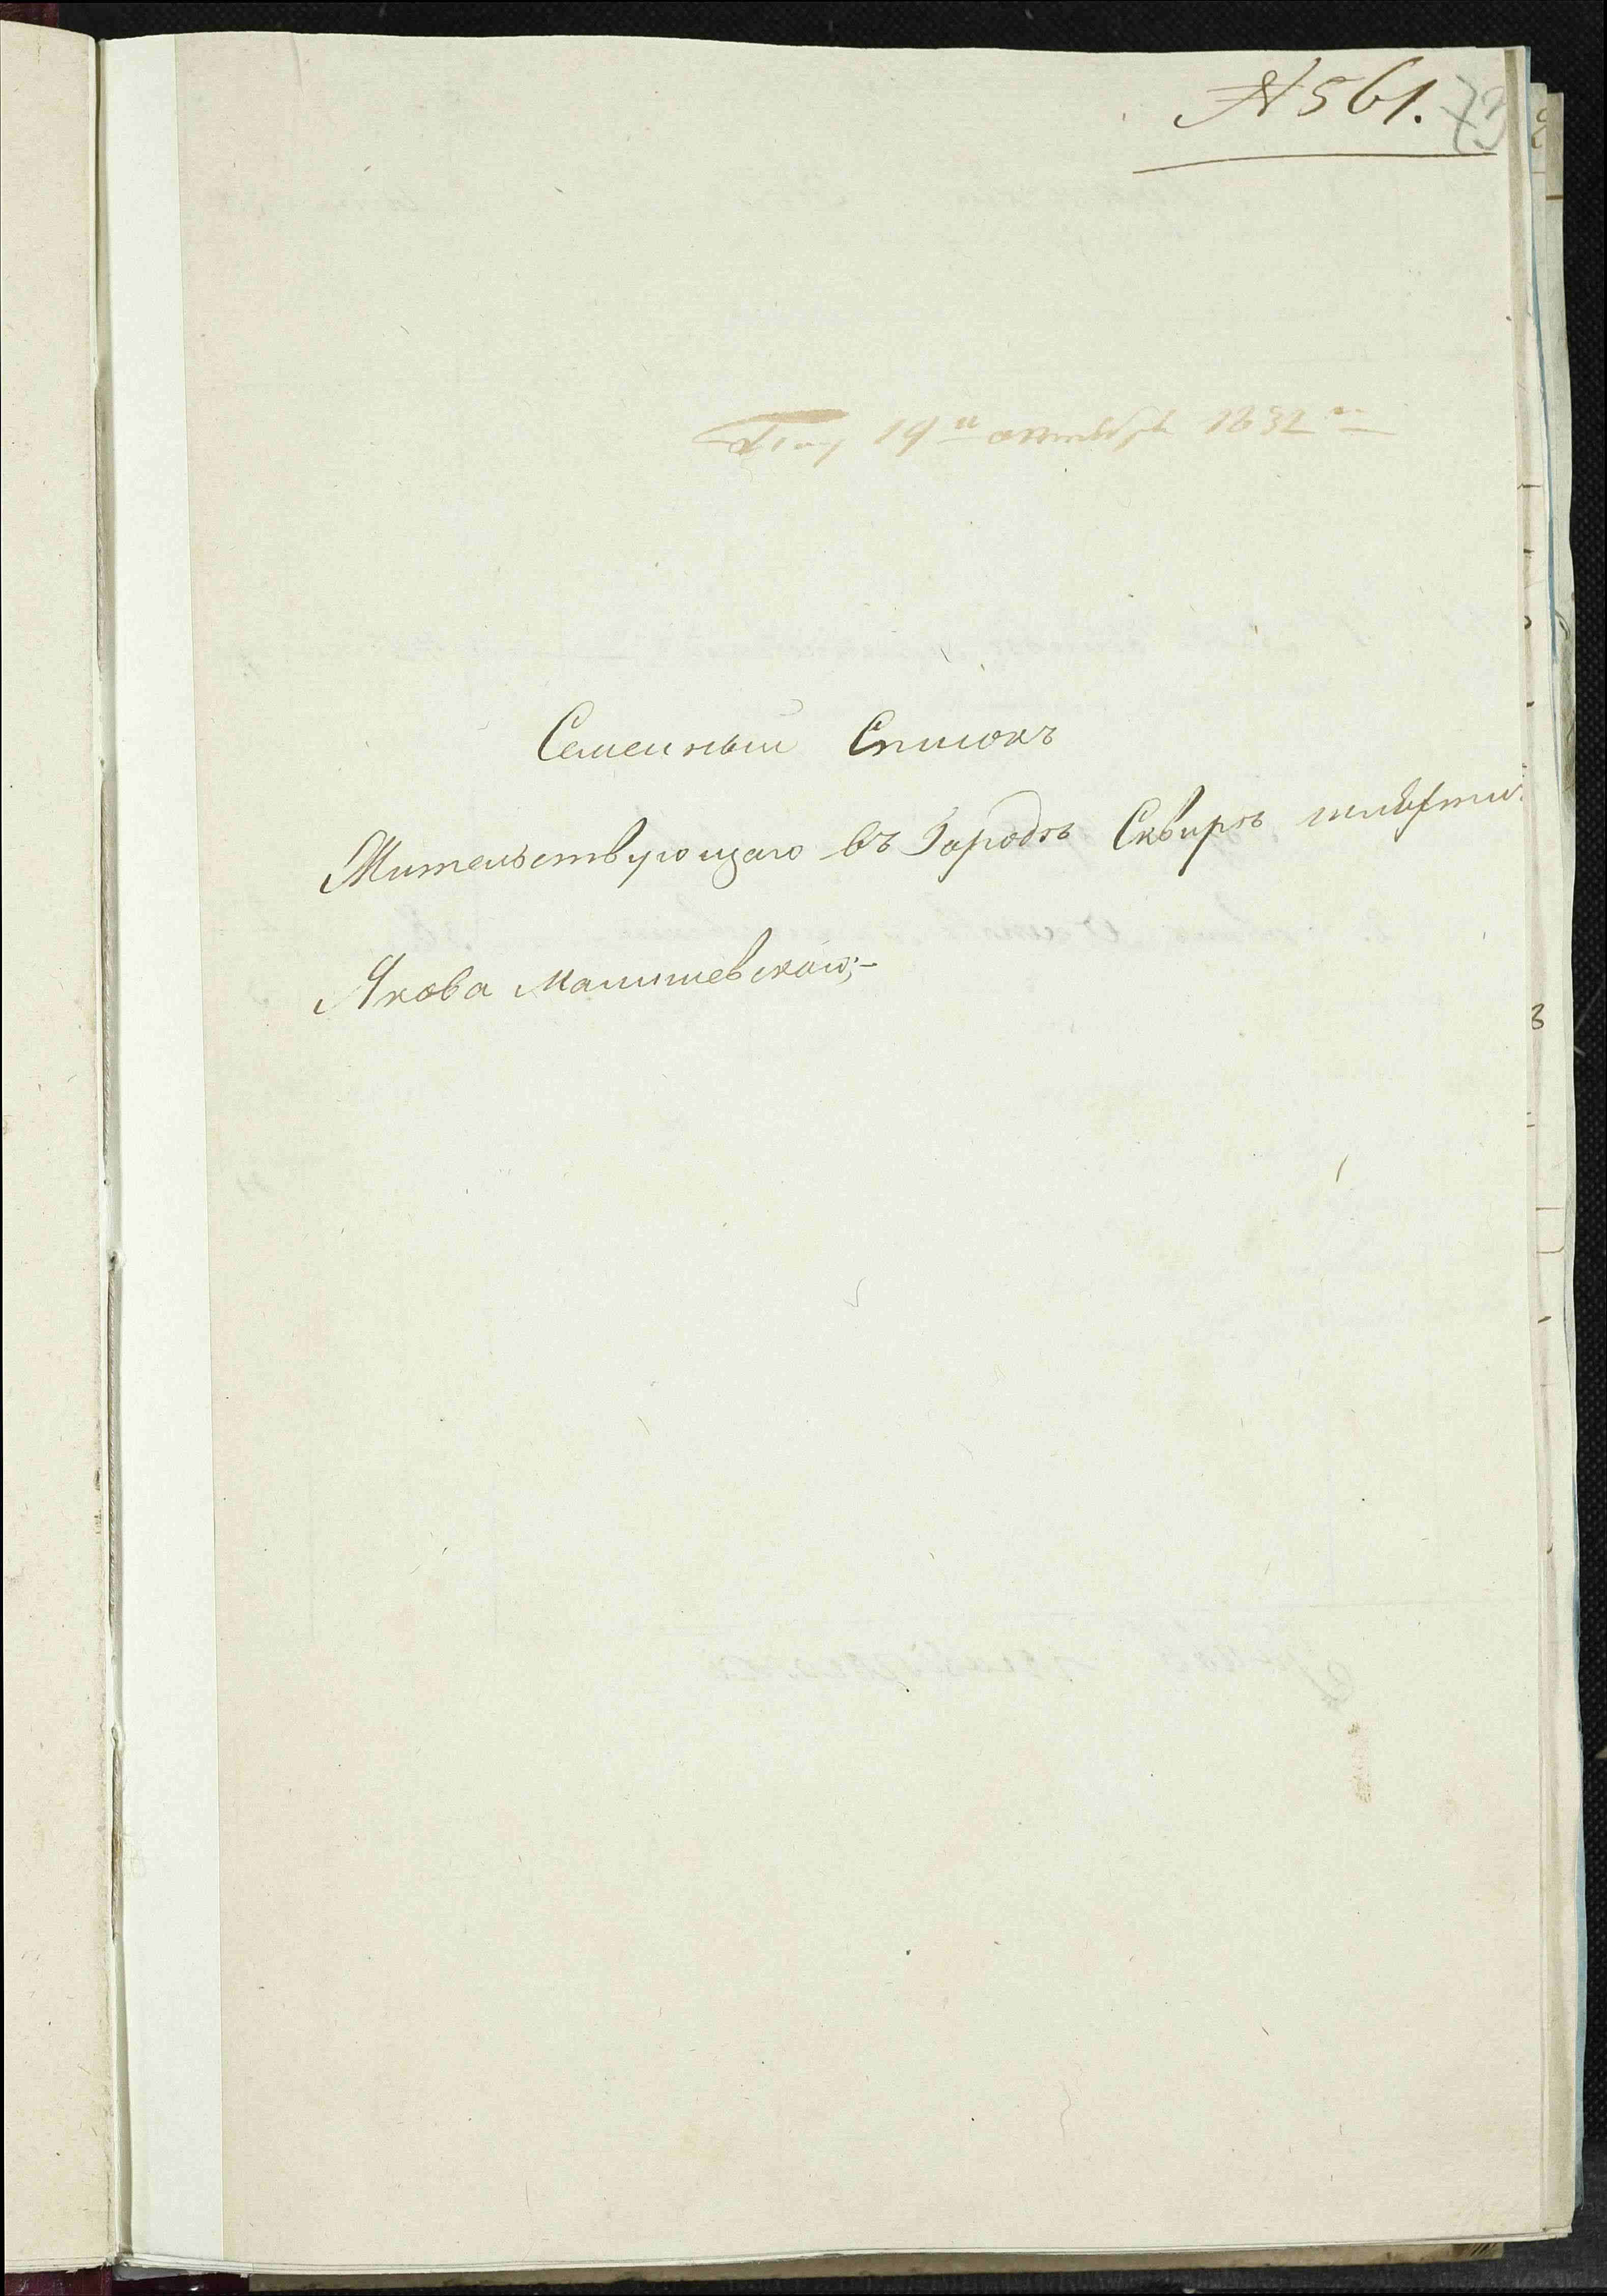 № 561. 73
19го октября 1832го
Семейный Списокъ
Жительствующаго въ Городѣ Сквирѣ
Якова Малишевскаго;-